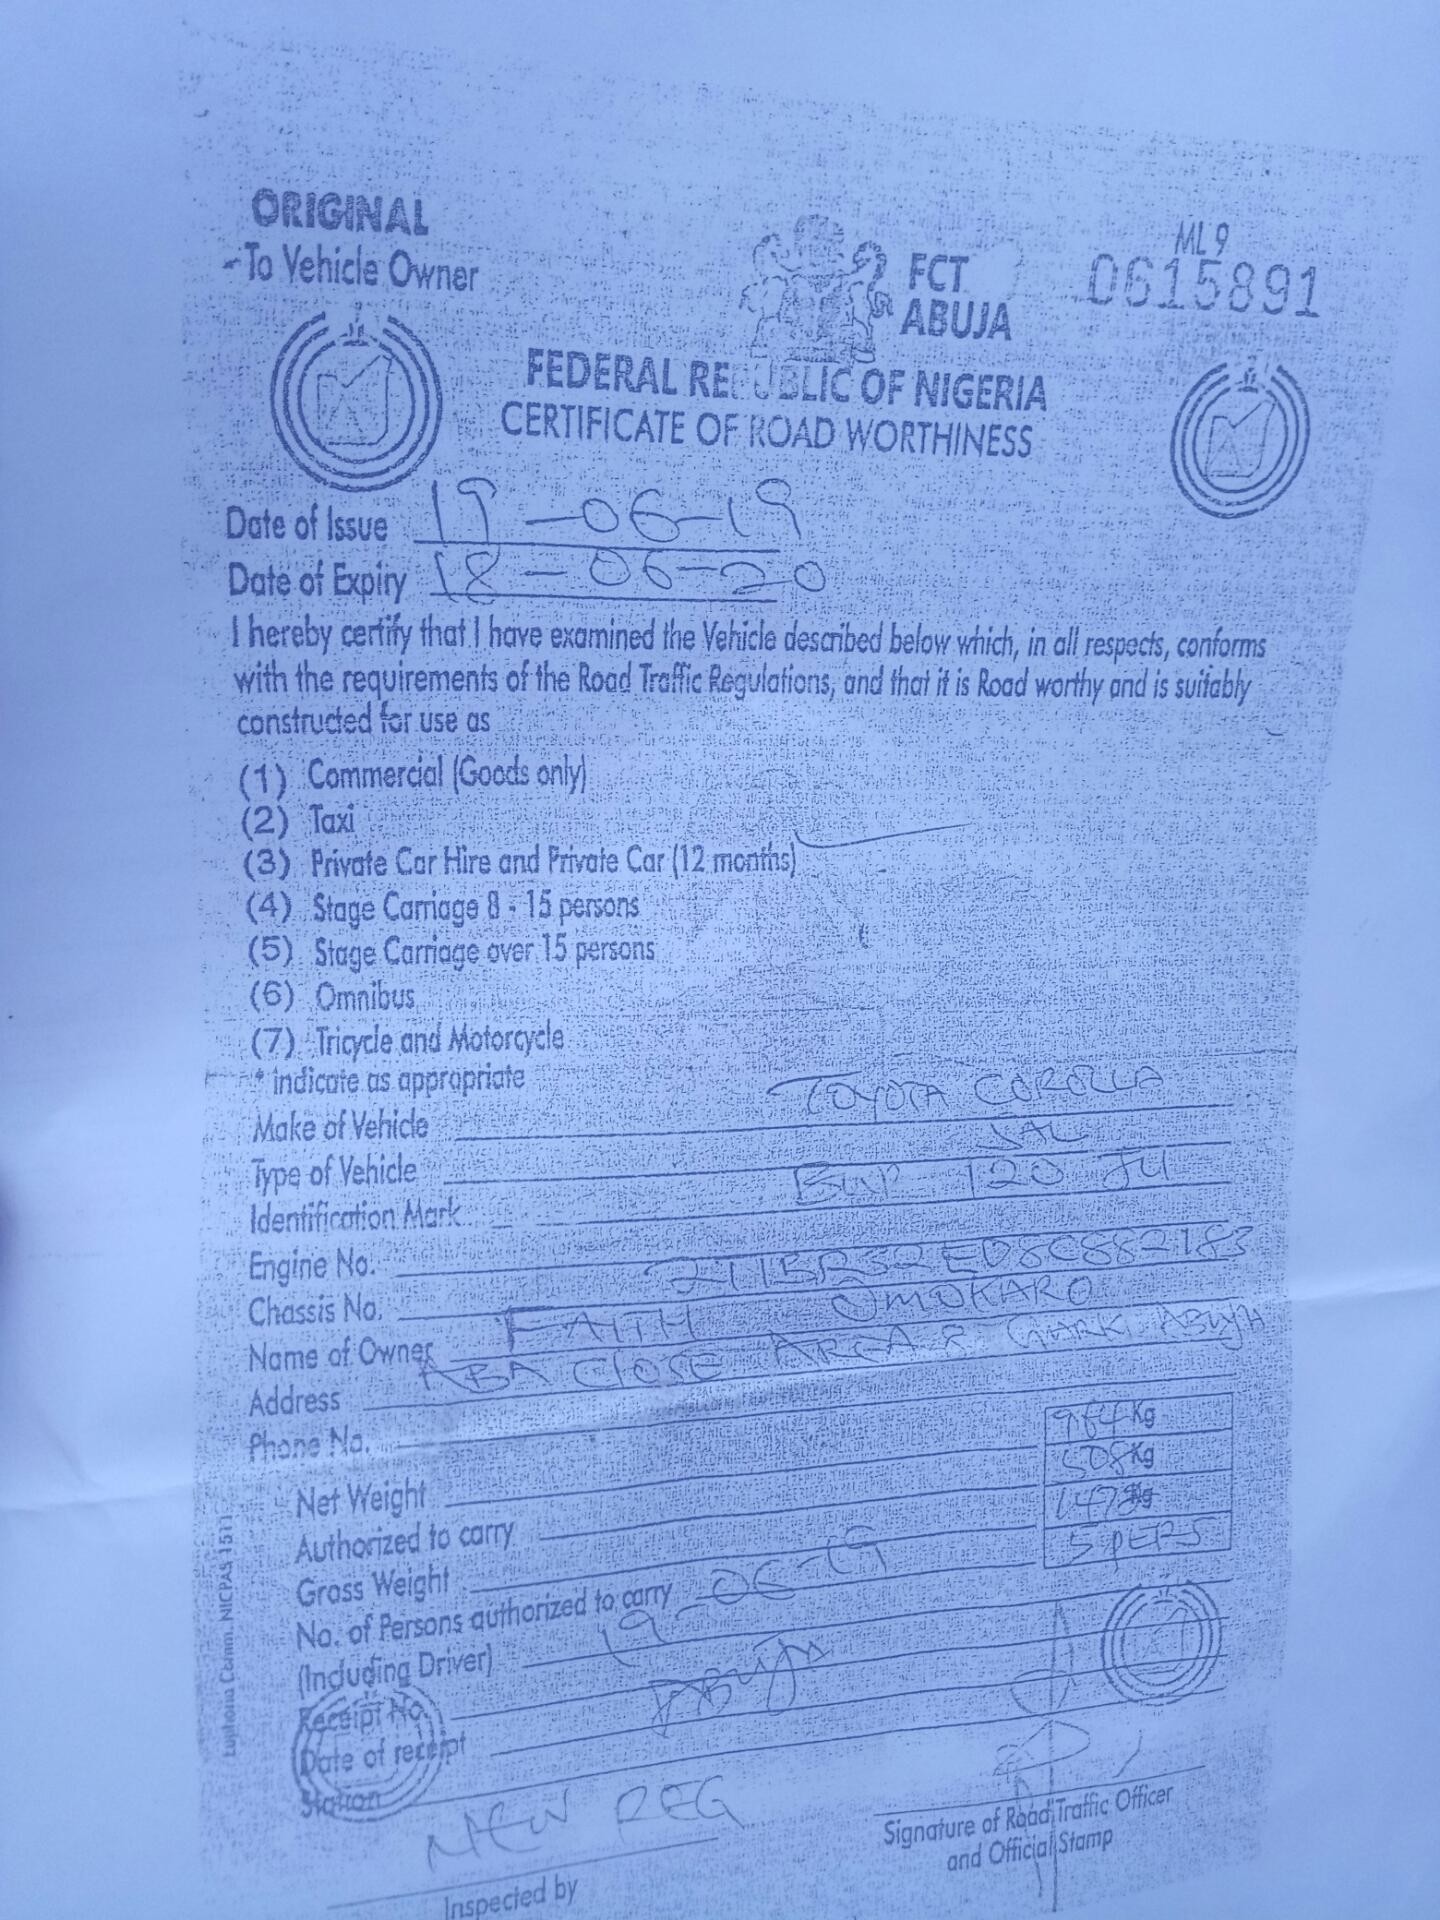 ORIGINAL
-To Vehicle Owner
ML 9
0615891
FCT
ABUJA
FEDERAL REPUBLIC OF NIGERIA
CERTIFICATE OF ROAD WORTHINESS
Date of Issue 19-06-19
Date of Expiry 18-06-20
I hereby certify that I have examined the Vehicle described below which, in all respects, conforms
with the requirements of the Road Traffic Regulations, and that it is Road worthy and is suitably
constructed for use as
(1) Commercial (Goods only)
(2) Taxi
(3) Private Car Hire and Private Car (12 months)
(4) Stage Carriage 8 - 15 persons
(5) Stage Carriage over 15 persons
(6) Omnibus
(7) Tricycle and Motorcycle
* indicate as appropriate
Make of Vehicle TOYOTA COROLLA
Type of Vehicle
Identification Mark 120
Engine No.
Chassis No.
Name of Owner FAITH OMOKARO
Address ABA CLOSE AREA 8 ABUJA
Phone No.
Net Weight Kg
Authorized to carry 508 Kg
Gross Weight Kg
No. of Persons authorized to carry 5 PERS
(Including Driver) 19-06-19
Receipt No.
Date of receipt ABUJA
Station
NEW REG
Inspected by
Signature of Road Traffic Officer
and Official Stamp
Comm. NICPAS 1511